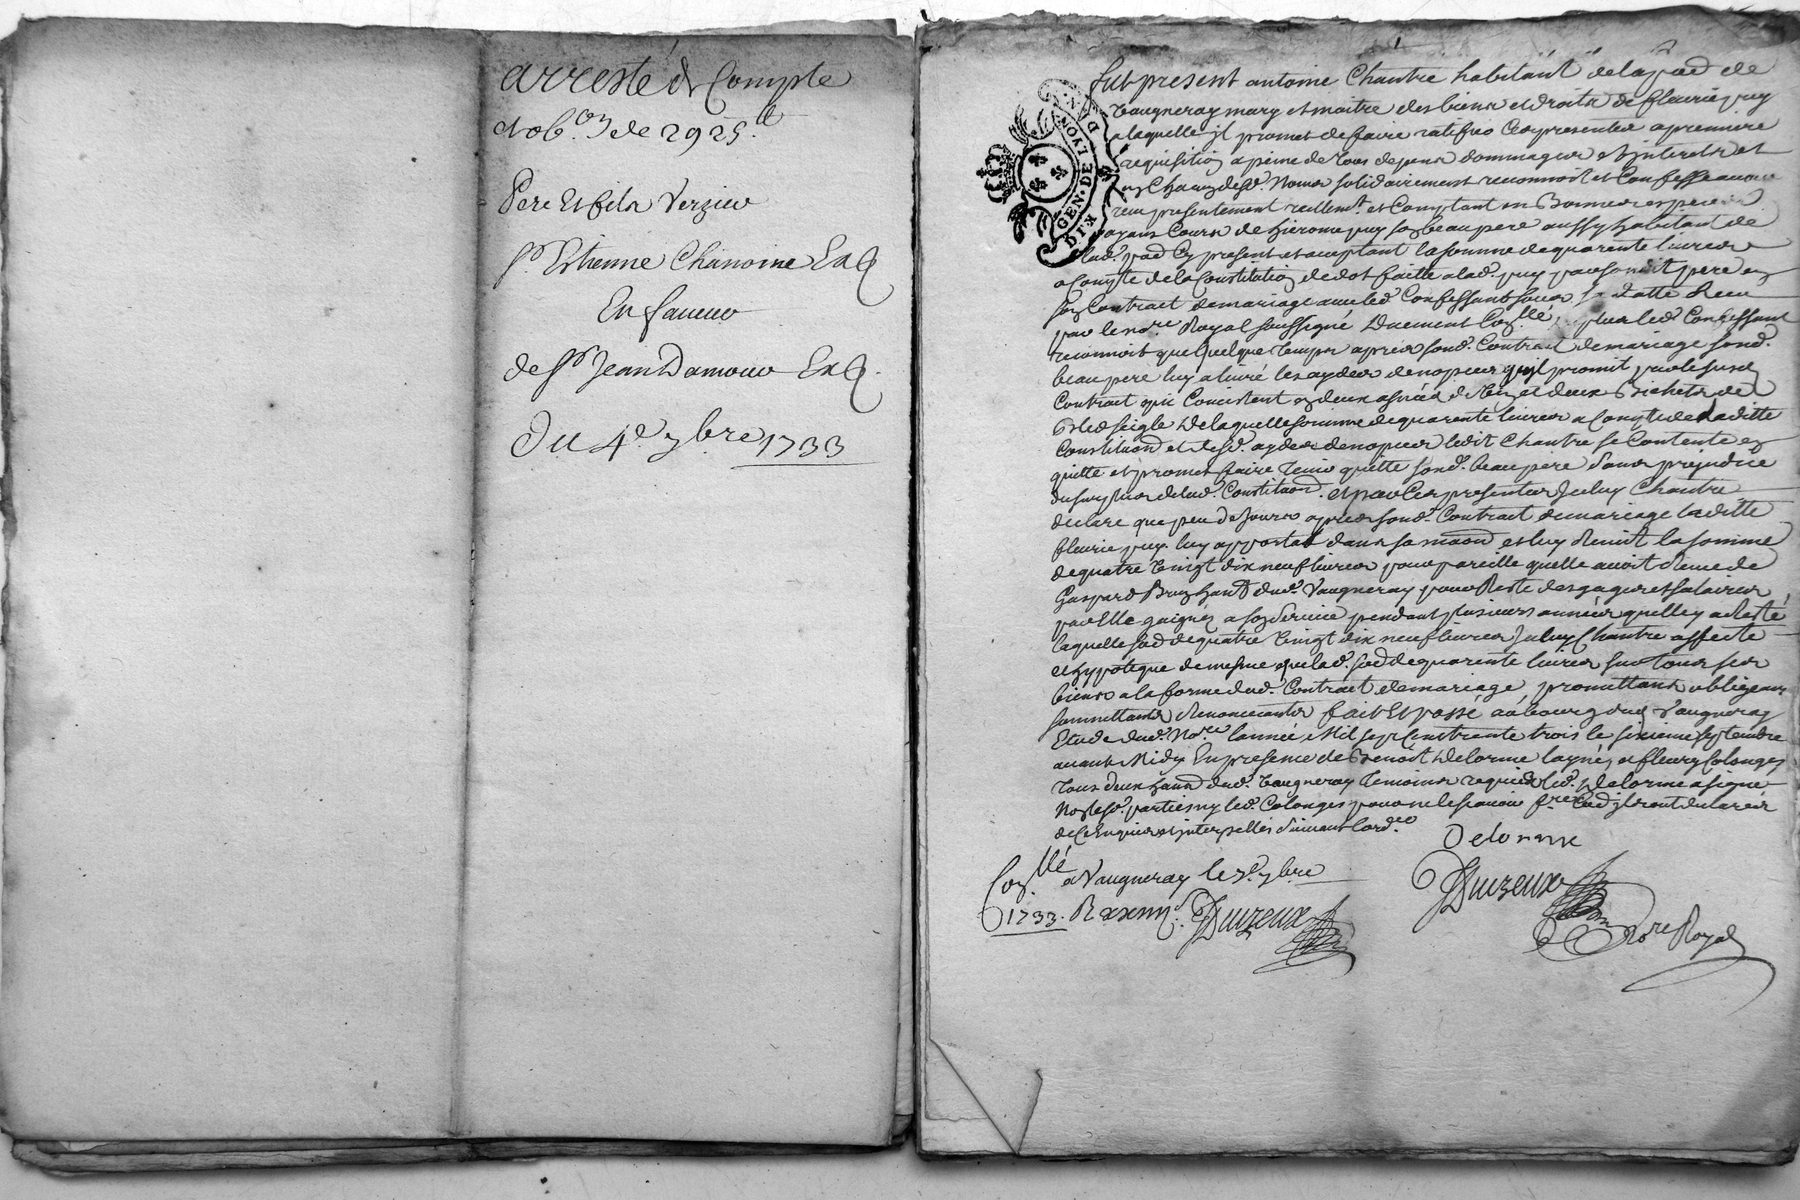 arresté de Compte
et ob.on de 2925 lt
Pere et fils Verzieu
Sr. Estienne Chanoine Ex
En faveur
de Sr Jean Damour Ex
Du 4e 7bre 1733
GEN. DE LYON
Fut present antoine Chantre habitant de la parr de
Vaugneray mary et maitre des biens et droits de fleurie puy
a laquelle jl promet de faire ratifier Ces presentes a premiere
requisition a peine de tous depens dommages et jnterets et
en Chacun desd. Noms solidairement reconnoit et Confesse avoir
reçu presentement reellemt. et Comptant en Bonnes especes
ayans Cours de hierome puy son beau pere aussy habitant de
lad. parr Cy present et acceptant la somme de quarente livres
a Compte de la Constitution de dot faitte a lad. puy par sondit pere en
son Contrait de mariage avec led. Confessant sous sa datte Receu
par le nore. Royal soussigné Duement Conllé led. Confessant
reconnoit que quelque temps apres sond. Contrait de mariage sond.
beau pere luy a livré les aydes de nopces qu'il promit par le susd
Contrait qui Concistent en deux asnées de Vin et deux Bichets de
Bled seigle De laquelle somme de quarente livres a Compte de laditte
Constituon et desd. aydes de nopces ledit Chantre se Contente en
quitte et promet faire tenir quitte sond. beau pere sans prejudice
du surplus de lad. Constituon. et par Ces presentes Jceluy Chantre
declare que peu de Jours apres sond. Contrait de mariage laditte
fleurie puy luy apportat dans sa maison et luy Remit la somme
de quatre Vingt dix neuf livres pour pareille quelle avoit Reçue de
Gaspard habt dud. Vaugneray pour Reste des gages et salaires
par Elle gaignés a son Service pendant plusieurs années quelle y a Resté
laquelle somme de quatre Vingt dix neuf livres Jceluy Chantre affecte
et hypoteque de mesme que lad. somme de quarente livres sur tous ses
biens a la forme dud. Contrait de mariage, promettant obligeant
soumettants Renonceants fait Et passé au bourg dud Vaugneray
Etude dud. Nore. l'année Mil sept Cent trente trois le sixieme septembre
avant Midy En presence de Benoist Delorme laynés et fleury Colonges
tous deux habts dud. Vaugneray temoins requis led. Delorme a signé
Non lesd. parties ny led. Colonges pour ne le scavoir jls ont declaré
de Ce Enquis et jnterpellés suivant l'ordce
Delorme
Conllé a Vaugneray le 7e 7bre
1733.
Nore Royal